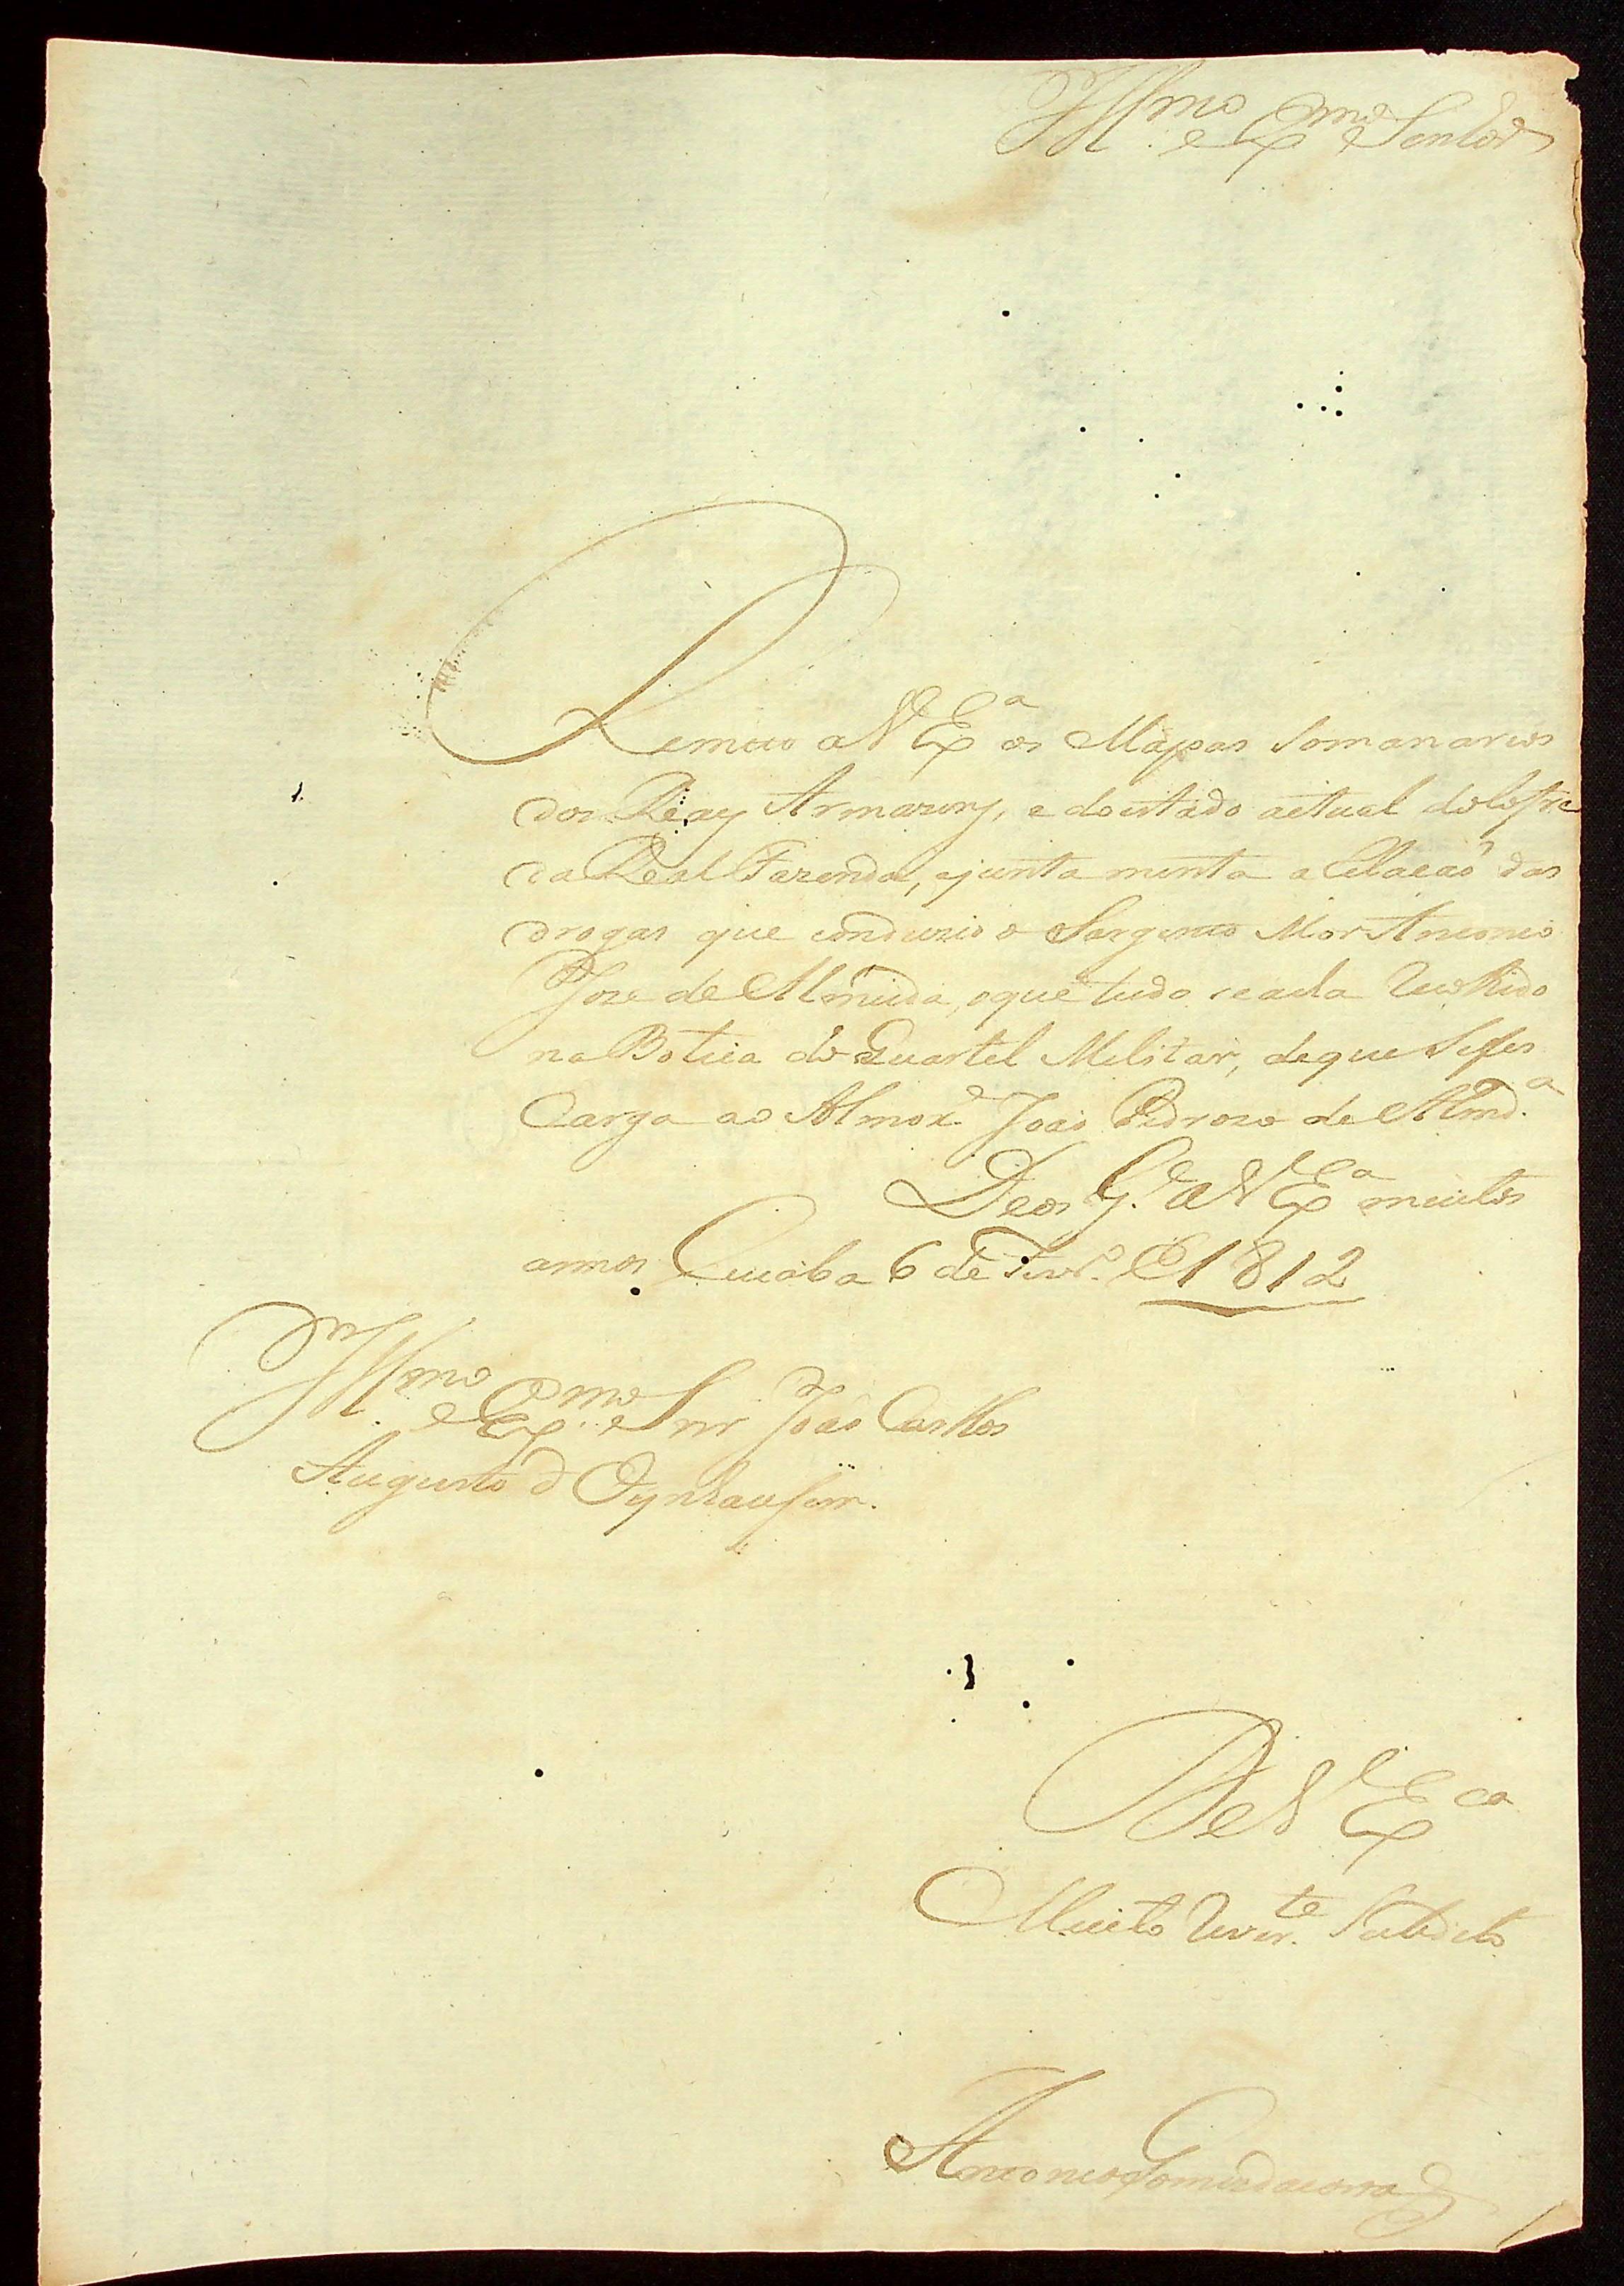 Illmo e Exmo Senhor
Remeto a V Exa os Mapas Somanarios
dos Reay Armazeny, e do estado actual do Cofre
da Real Fazenda, ajunta menta a Relacaõ das
drogas que conduzio o Sargento Mor Antonio
Joze de Almeida, o que tudo se acha recolhido
na Botica do Quartel Melitar, de que Se fes
Carga ao Almoxe João Pedrozo de Almda
Deos Ge a V Exa muitos
annos Cuiaba 6 de Fevro de 1812
Illmo e Exmo Snr João Carllos
Augusto d Oynhausem.
De V Exca
Muito Revte Subdito
Antonio Gomes da Costa